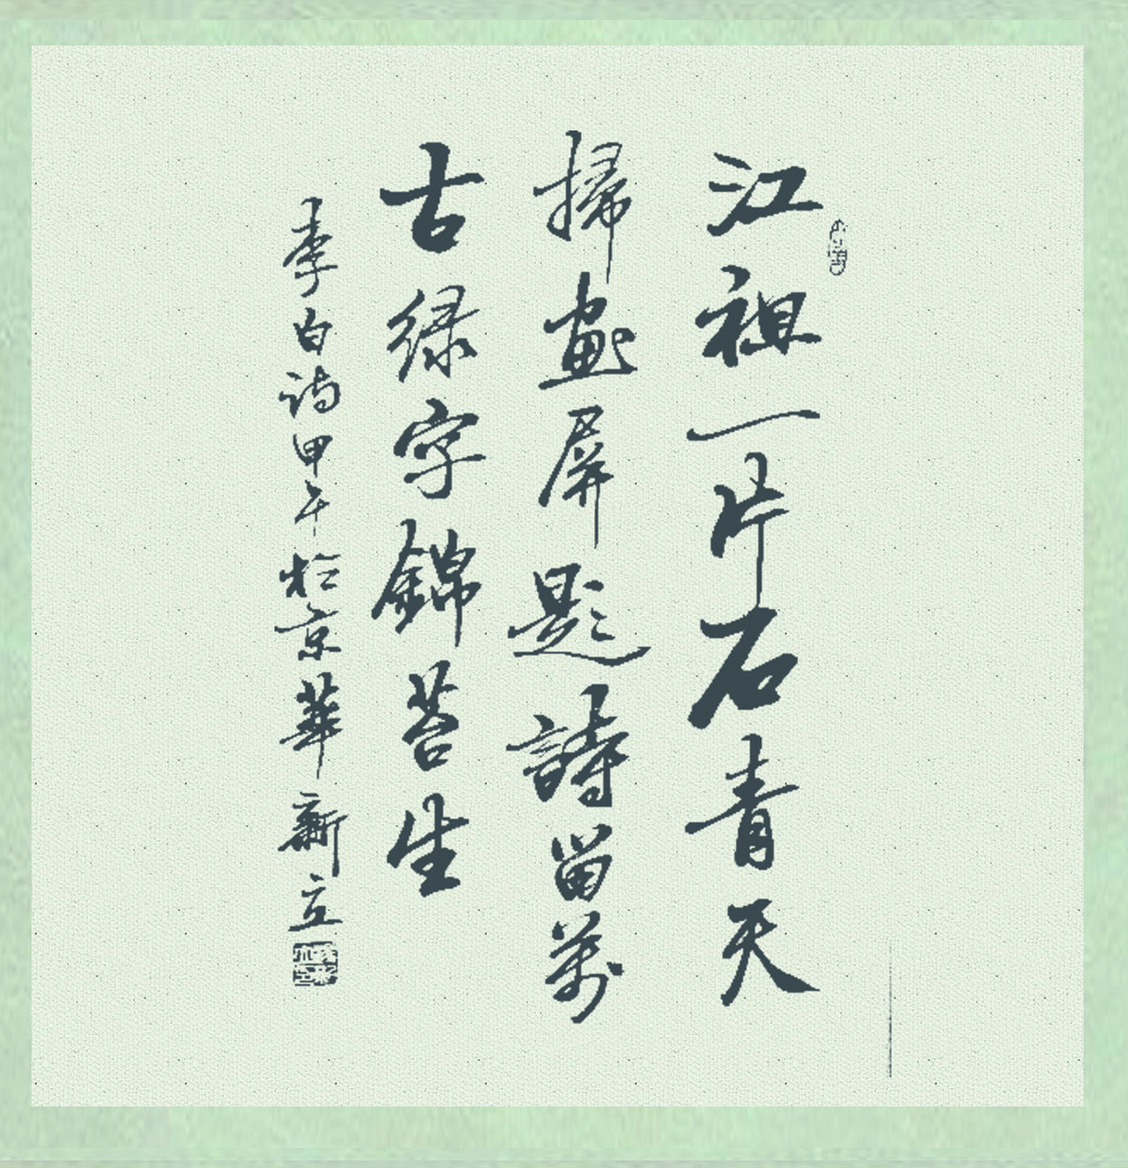 江祖一片石青天
掃畫屏題詩留萬
古绿字錦苔生
李白诗甲午於京華新立